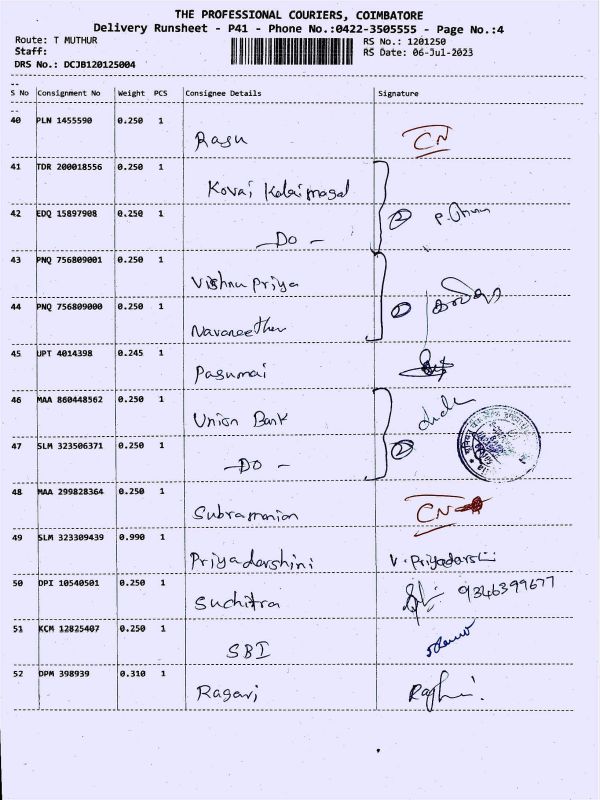 THE PROFESSIONAL COURIERS, COIMBATORE
Delivery Runsheet - P41 - Phone No.:0422-3505555 - Page No.:4
Route: T MUTHUR RS No.: 1201250
Staff: RS Date: 06-Jul-2023
DRS No.: DCJB120125004
S No Consignment No Weight PCS Consignee Details Signature
40 PLN 1455590 0.250 1
Ragu CN
41 TDR 200018556 0.250 1
Kovai Kalaimagal
42 EDQ 15897908 0.250 1 2
- Do -
43 PNQ 756809001 0.250 1
Vishnu Priya
44 PNQ 756809000 0.250 1 2
Navaneethan
45 UPT 4014398 0.245 1
Pasumai
46 MAA 860448562 0.250 1
Union Bank
47 SLM 323506371 0.250 1 2
- Do -
48 MAA 299828364 0.250 1
Subramanian CN
49 SLM 323309439 0.990 1
Priyadarshini V. Priyadarshini
50 DPI 10540501 0.250 1
Suchitra 9346399677
51 KCM 12825407 0.250 1
SBI
52 DPM 398939 0.310 1
Ragavi